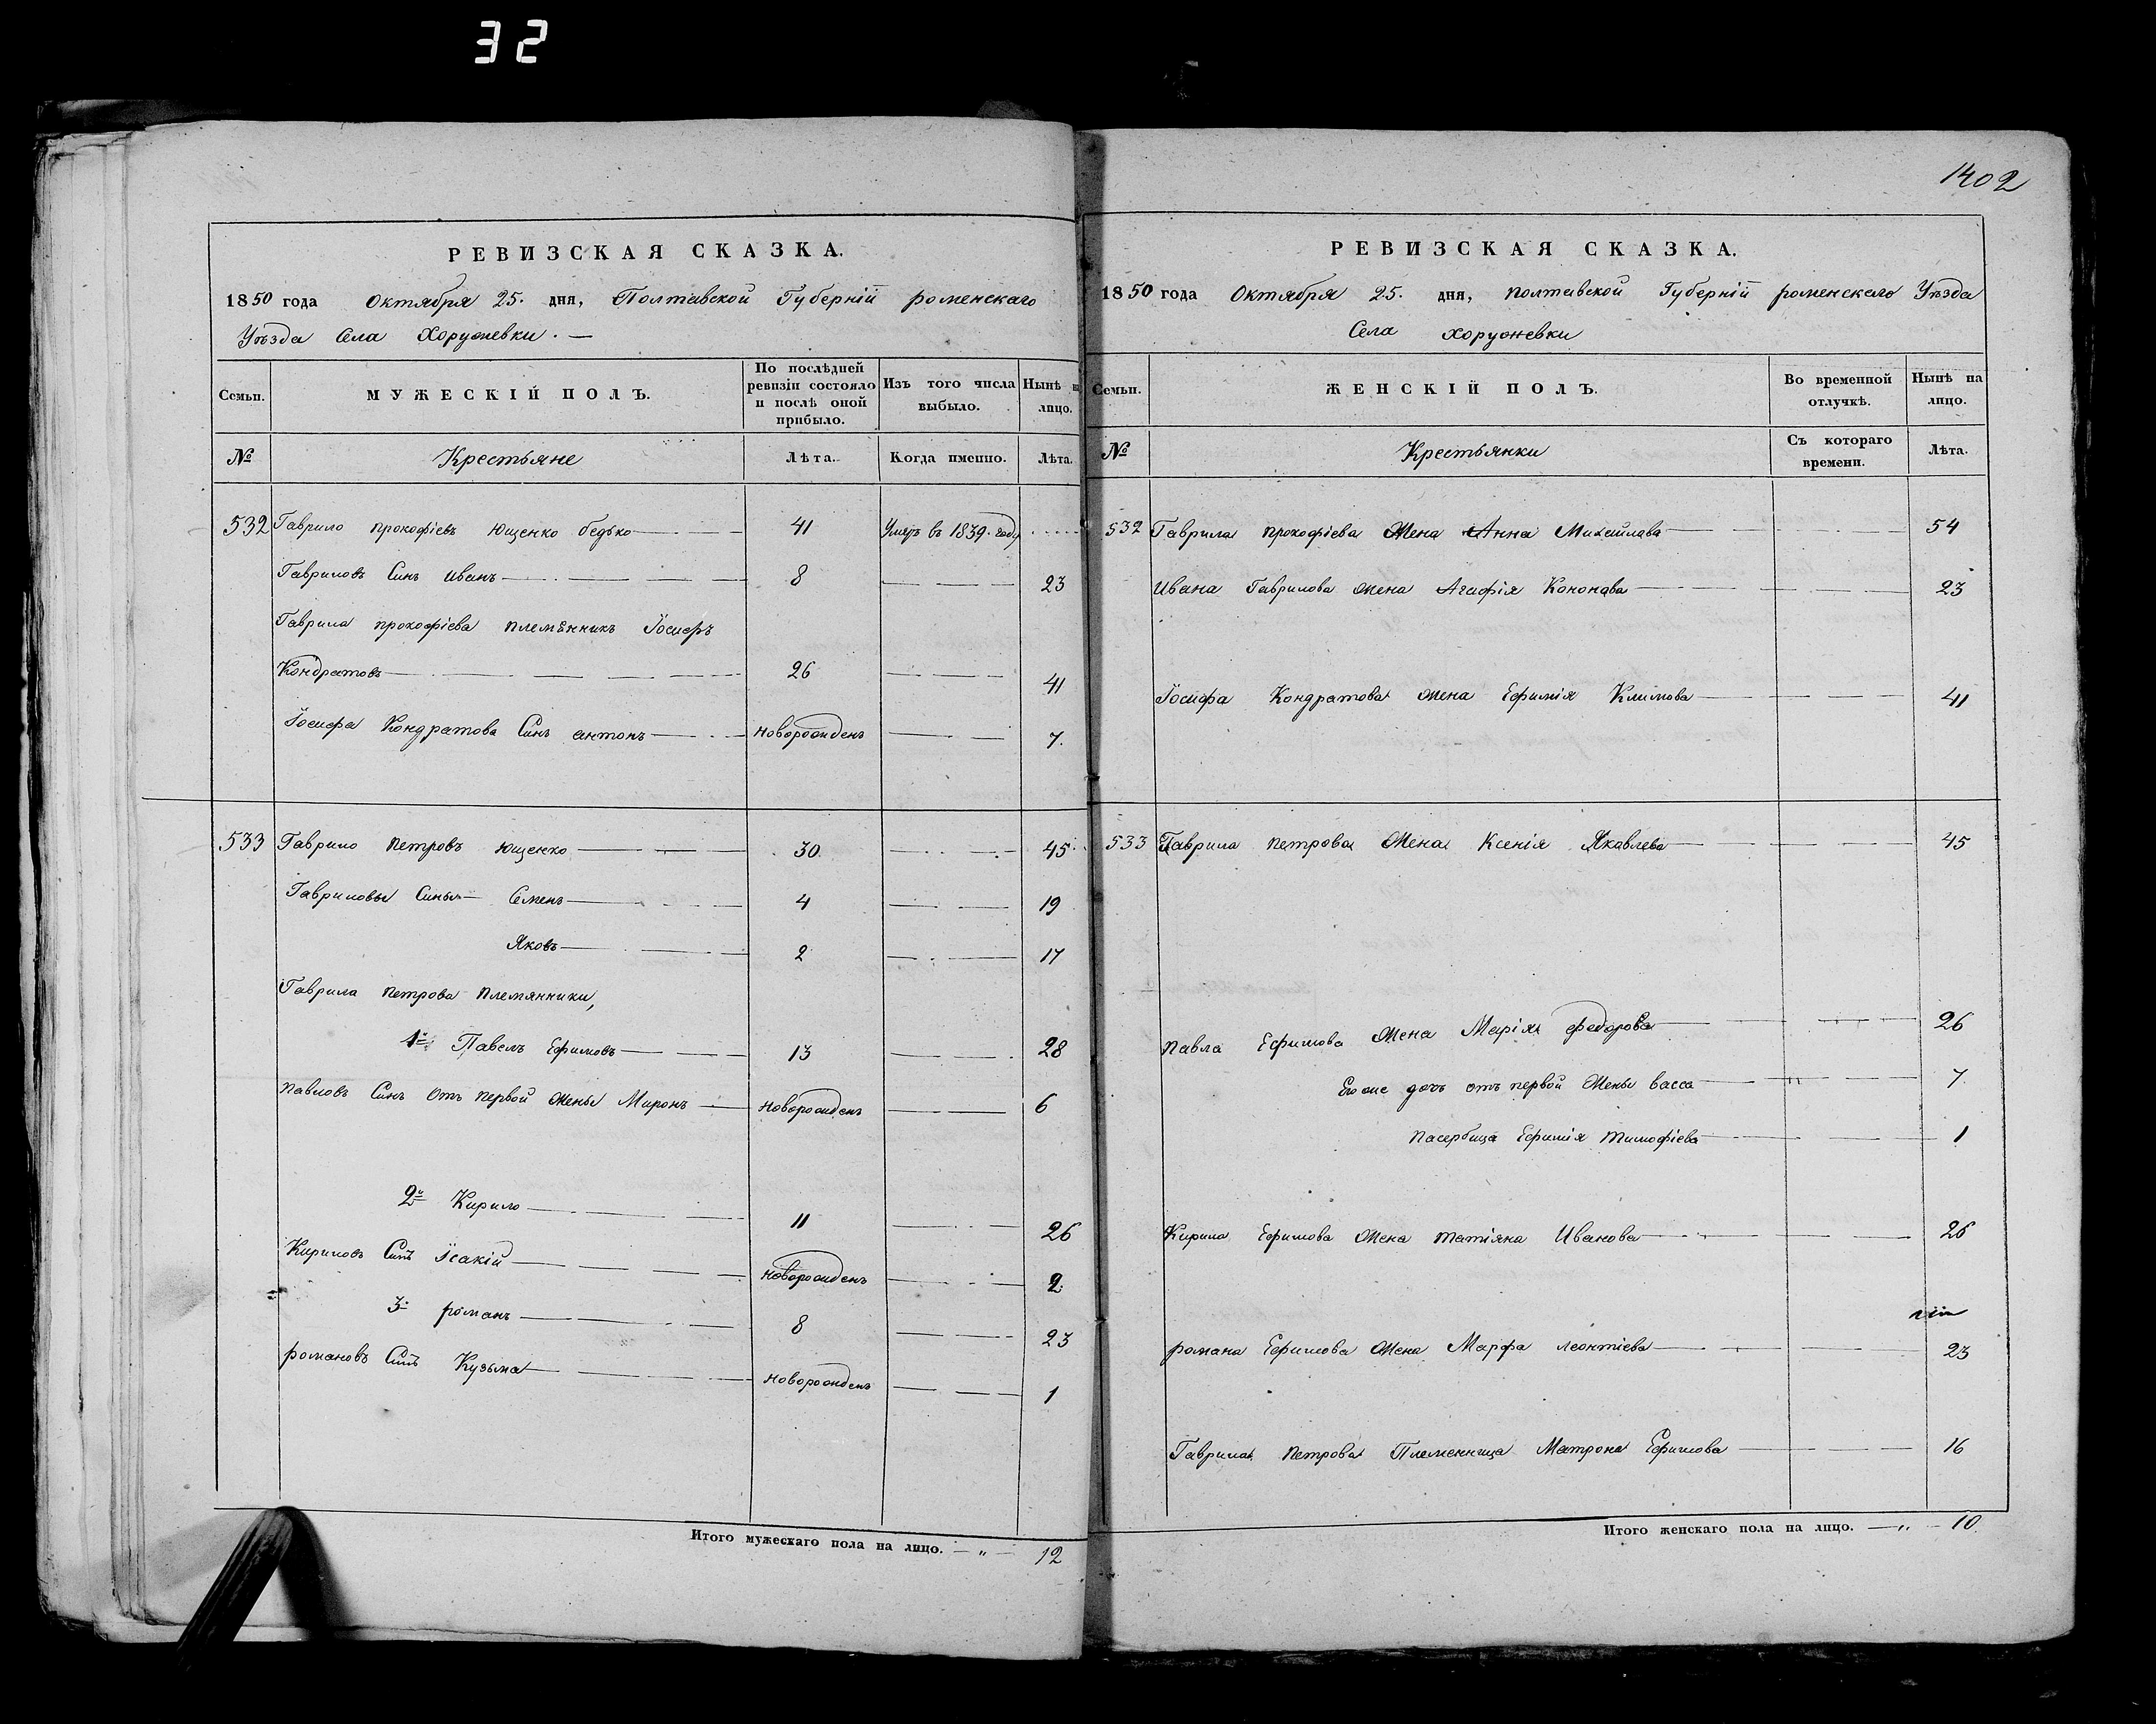 32
1402
РЕВИЗСКАЯ СКАЗКА.
1850 года Октября 25. дня, Полтавской Губерній роменскаго
Уѣзда Села Хоружевки. —
Семьи.
МУЖЕСКІЙ ПОЛЪ.
По послѣдней ревизіи состояло и послѣ оной прибыло.
Изъ того числа выбыло.
Нынѣ на лицо.
№
Крестьяне
Лѣта.
Когда именно.
Лѣта.
532 Гаврило прокофіевъ Ющенко бедько 41 Умеръ въ 1839. году
Гавриловъ Синъ иванъ 8 23
Гаврила прокофіева племѣнникъ Іосифъ
Кондратовъ 26 41
Іосифа Кондратова Синъ антонъ новорожденъ 7.
533 Гаврило петровъ Ющенко 30 45
Гавриловы Сины Семенъ 4 19
Яковъ 2 17
Гаврила петрова племянники,
1й Павелъ Ефимовъ 13 28
павловъ Синъ отъ первой жены Миронъ новорожденъ 6
2й Кирило 11 26
Кириловъ Синъ Ісакій новорожденъ 2
3й романъ 8 23
романовъ Синъ Кузьма новорожденъ 1
Итого мужескаго пола на лицо. — „ — 12
РЕВИЗСКАЯ СКАЗКА.
1850 года Октября 25. дня, полтавской Губерній роменскаго Уѣзда
Села хоружевки
Семьи.
ЖЕНСКІЙ ПОЛЪ.
Во временной отлучкѣ.
Нынѣ на лицо.
№
Крестьянки
Съ котораго времени.
Лѣта.
532 Гаврила прокофіева Жена Анна Михайлава 54
Ивана Гаврилова жена Агафія Кононава 23
Іосифа Кондратова жена Ефимія Климова 41
533 Гаврила петрова Жена Ксенія Якавлева 45
павла Ефимова Жена Марія федорова 26
Его же дочь отъ первой Жены васса 7
пасербица Ефимія тимофіева 1
Кирила Ефимова Жена татіяна Иванова 26
романа Ефимова Жена Марфа леонтіева 23
Гаврила петрова Племенница Матрона Ефимова 16
Итого женскаго пола на лицо. — „ — 10.